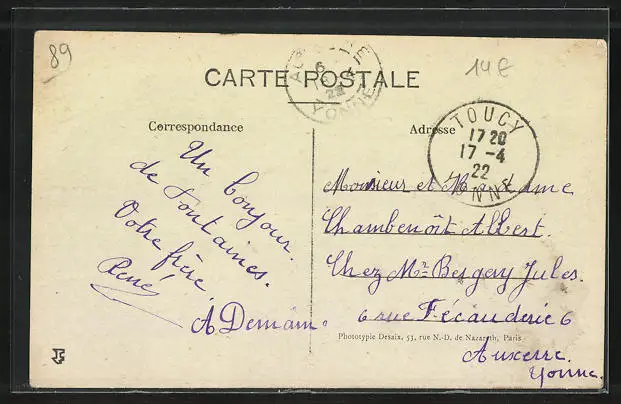 89
14€
CARTE POSTALE
Correspondance
Adresse
TOUCY
17 20
17 -4
22
YONNE
Un bonjour
de Fontaines.
Votre frère
René
A Demain.
Monsieur et Madame
Chambenoît Albert.
Chez Mr Bergery Jules.
6 rue Fécauderie 6
Auxerre.
Yonne.
Phototypie Desaix, 53, rue N.-D. de Nazareth, Paris